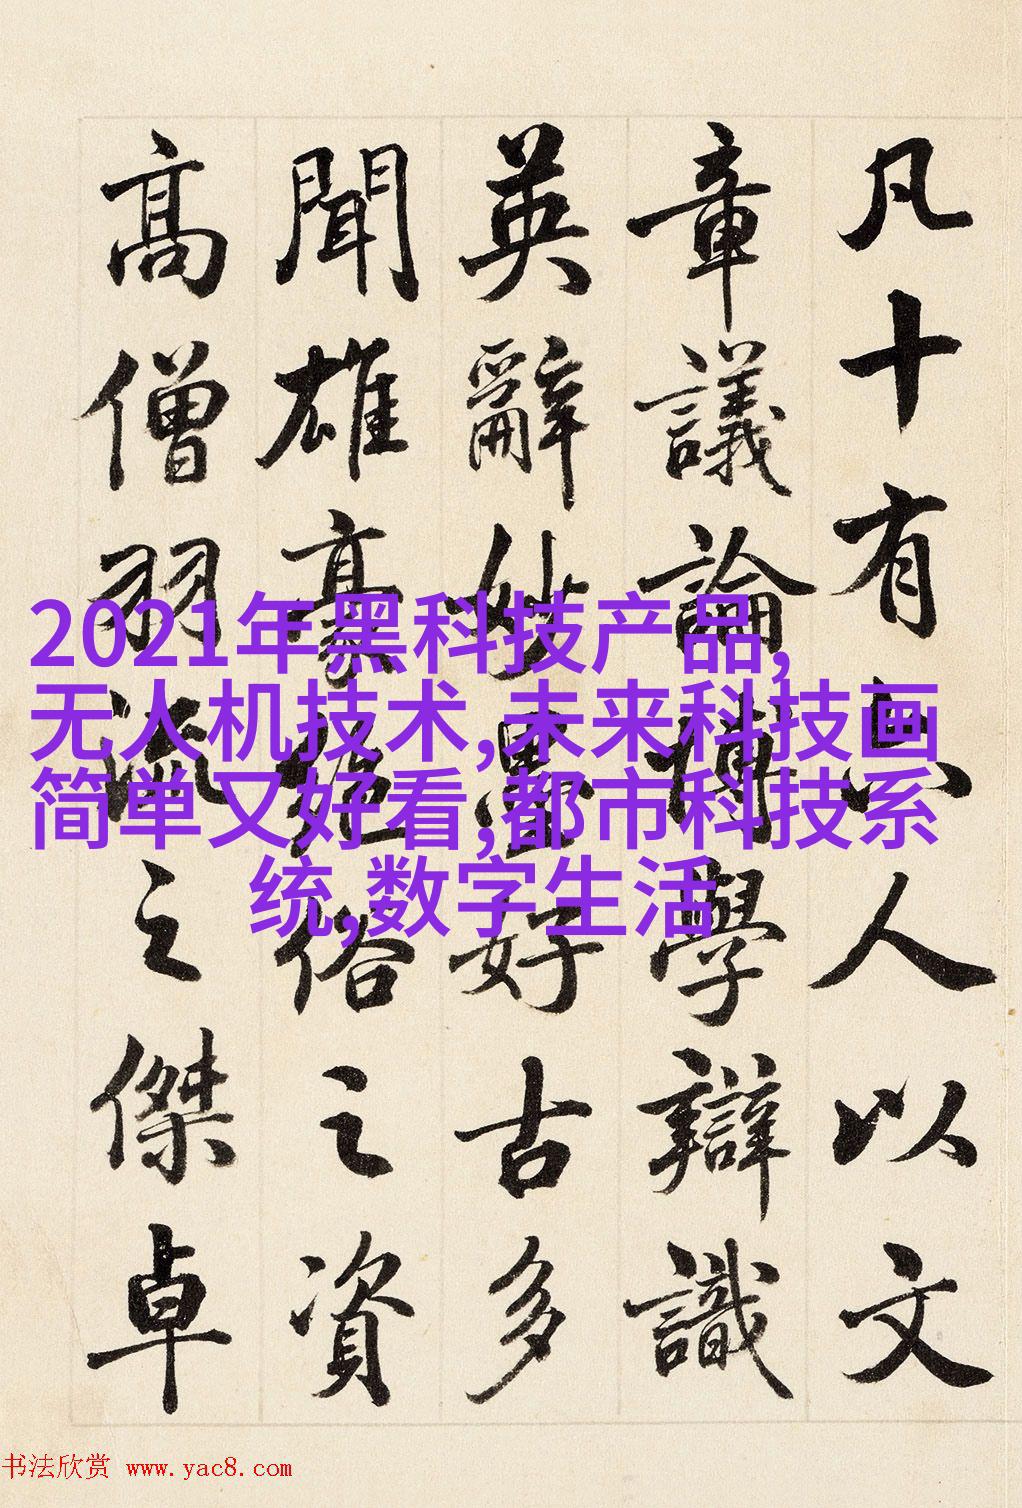 凡十有六人以文
章議論博學辯識
英辭妙墨好古多
聞雄豪絕俗之資
髙僧羽流之傑卓
2021年黑科技产品,
无人机技术,未来科技画
简单又好看,都市科技系
统,数字生活
书法欣赏 www.yac8.com